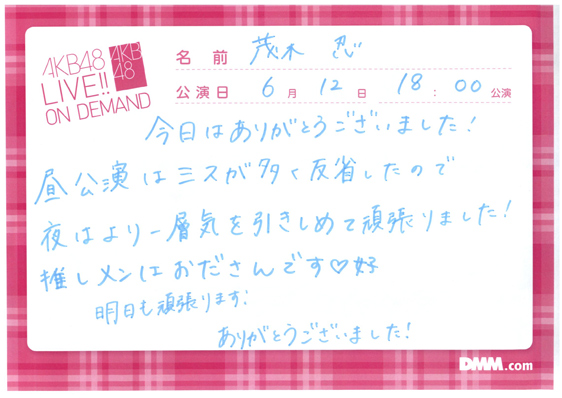 AKB48
LIVE!!
ON DEMAND
AKB
48
名前 茂木 忍
公演日 6月 12日 18:00公演
今日はありがとうございました!
昼公演はミスが多く反省したので
夜はより一層気を引きしめて頑張りました!
推しメンはおださんです♡好
明日も頑張ります
ありがとうございました!
DMM.com